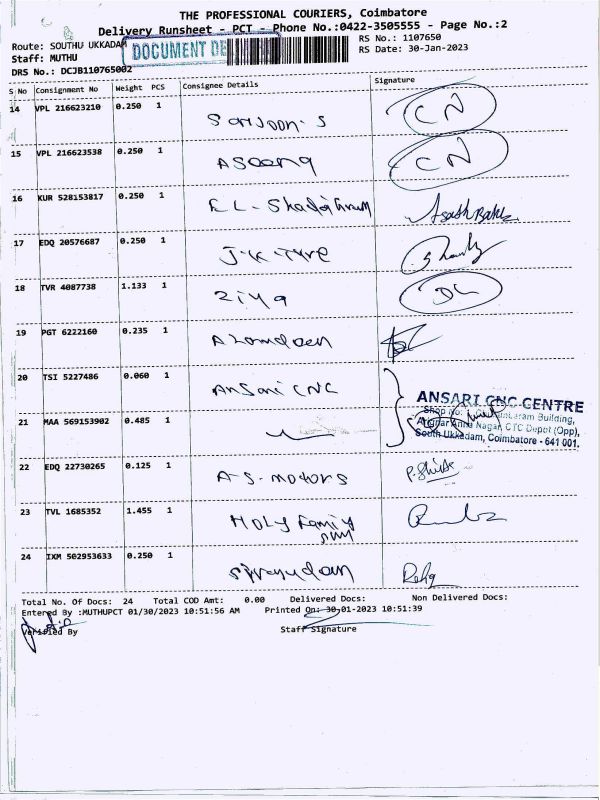 THE PROFESSIONAL COURIERS, Coimbatore
Delivery Runsheet - CCT - Phone No.:0422-3505555 - Page No.:2
Route: SOUTHU UKKADAM
DOCUMENT DE
RS No.: 1107650
Staff: MUTHU
RS Date: 30-Jan-2023
DRS No.: DCJB110765002
S No Consignment No Weight PCS Consignee Details Signature
14 VPL 216623210 0.250 1 CN
15 VPL 216623538 0.250 1 CN
16 KUR 528153817 0.250 1
17 EDQ 20576687 0.250 1 J.K. Tyre
18 TVR 4087738 1.133 1 Ziya DL
19 PGT 6222160 0.235 1
20 TSI 5227486 0.060 1 Ansari CNC
ANSARI CNC CENTRE
Shop No:
Building,
21 MAA 569153902 0.485 1
Nagar, CTC Depot (Opp),
South Ukkadam, Coimbatore - 641 001.
22 EDQ 22730265 0.125 1 A-S- motors
23 TVL 1685352 1.455 1 HOLY Family
24 IXM 502953633 0.250 1
Total No. Of Docs: 24 Total COD Amt: 0.00 Delivered Docs: Non Delivered Docs:
Entered By :MUTHUPCT 01/30/2023 10:51:56 AM Printed On: 30-01-2023 10:51:39
Verified By Staff Signature